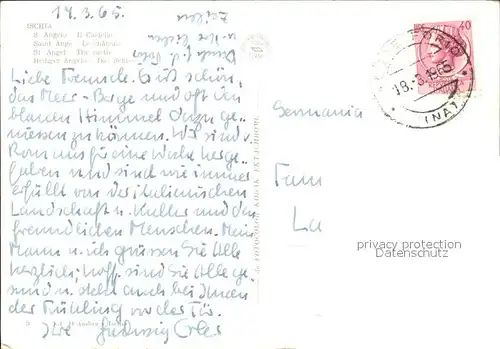 17.3.65.
ISCHIA
S. Angelo Il Castello
Sant' Ange Le château
St. Angel The castle
Heiliger Angelo Das Schloss
Dank f. d. 
Zeilen
Liebe Freunde. Es ist schön,
das Meer - Berge und oft den
blauen Himmel dazu ge-
niessen zu können. Wir sind v.
Rom aus für eine Woche herge-
fahren und sind wie immer
erfüllt von der italienischen
Landschaft u. Kultur und den
freundlichen Menschen. Mein
Mann u. ich grüssen Sie Alle
herzlich; hoff. sind Sie Alle ge-
sund u. steht auch bei Ihnen
der Frühling vor der Tür.
Ihre Hedwig
FOTOCOLOR KODAK EKTACHROME
40
18.-3.19
(NA)
Germania
Fam
La
privacy protection
Datenschutz